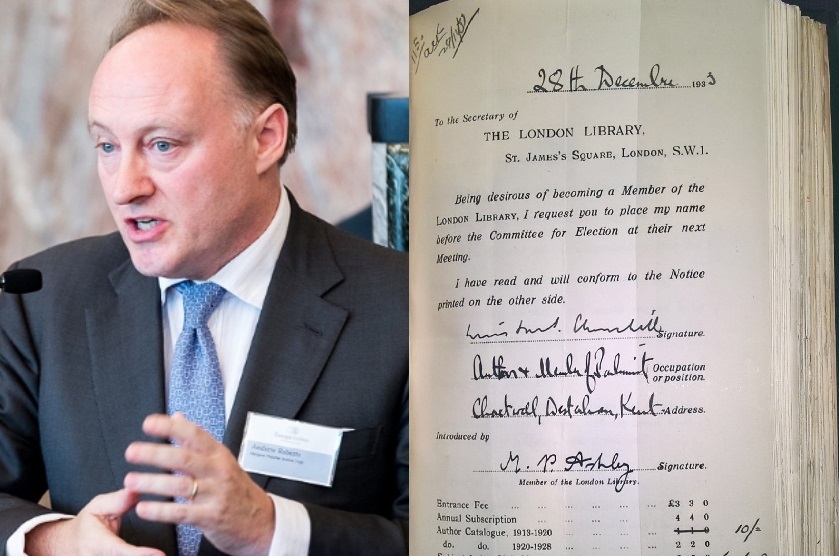 Andrew Roberts
28th Decembre 1933
To the Secretary of
THE LONDON LIBRARY,
ST. JAMES'S SQUARE, LONDON, S.W.1.
Being desirous of becoming a Member of the
LONDON LIBRARY, I request you to place my name
before the Committee for Election at their next
Meeting.
I have read and will conform to the Notice
printed on the other side.
Winston S. Churchill Signature.
Author & Member of Parliament Occupation
or position.
Chartwell, Westerham, Kent Address.
introduced by
M. P. Ashley Signature.
Member of the London Library.
Entrance Fee ... ... ... ... £3 3 0
Annual Subscription ... ... ... 4 4 0
Author Catalogue, 1913-1920 ... 1 0
do. do. 1920-1928 ... 2 2 0 10/-